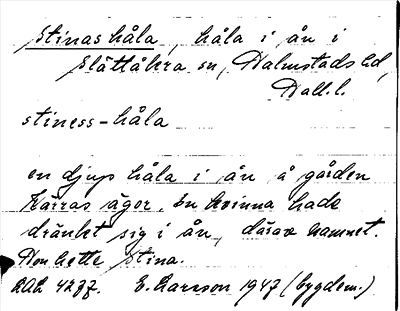 Stinas håla, håla i ån i
Slättåkra sn, Halmstads hd,
Hall. l.
stiness-håla
en djup håla i ån å gården
Kärras ägor. En kvinna hade
dränkt sig i ån, därav namnet.
Hon hette Stina.
E. Larsson 1947 (bygdem.)